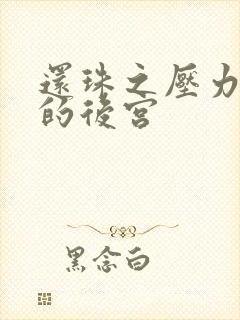 還珠之壓力
的後宮
黑念白